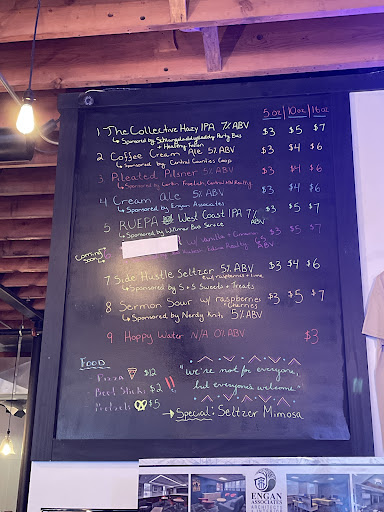 5 oz | 10 oz | 16 oz
1 The Collective Hazy IPA 7% ABV $3 $5 $7
↳ Sponsored by Party Bus
+ Healthy
2 Coffee Cream Ale 5% ABV $3 $4 $6
↳ Sponsored by Central Counties Coop
3 Pileated Pilsner 5% ABV $3 $4 $6
↳ Sponsored by Central MN Realty
4 Cream Ale 5% ABV $3 $4 $6
↳ Sponsored by Engan Associates
5 RUEPA West Coast IPA 7% ABV $3 $5 $7
↳ Sponsored by Willmar Bus Service
Coming Soon w/ Vanilla + $3 $5 $7
Realty ABV
7 Side Hustle Seltzer 5% ABV $3 $4 $6
raspberries + lime
↳ Sponsored by S + S Sweets + Treats
8 Sermon Sour w/ raspberries $3 $5 $7
+ Cherries
↳ Sponsored by Nerdy Knit, 5% ABV
9 Hoppy Water N/A 0% ABV $3
FOOD
Pizza $12
Beef Sticks $2
Pretzels $5
"We're not for everyone,
but everyone's welcome"
→ Special: Seltzer Mimosa
ENGAN
ASSOCIATES
ARCHITECTS